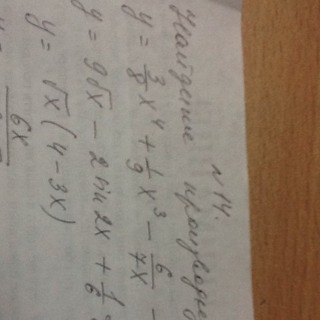 № 14.
Найдите
y = 3/8 x⁴ + 1/9 x³ − 6/7x −
y = 9√x − 2 sin 2x + 1/6
y = √x (4 − 3x)
6x